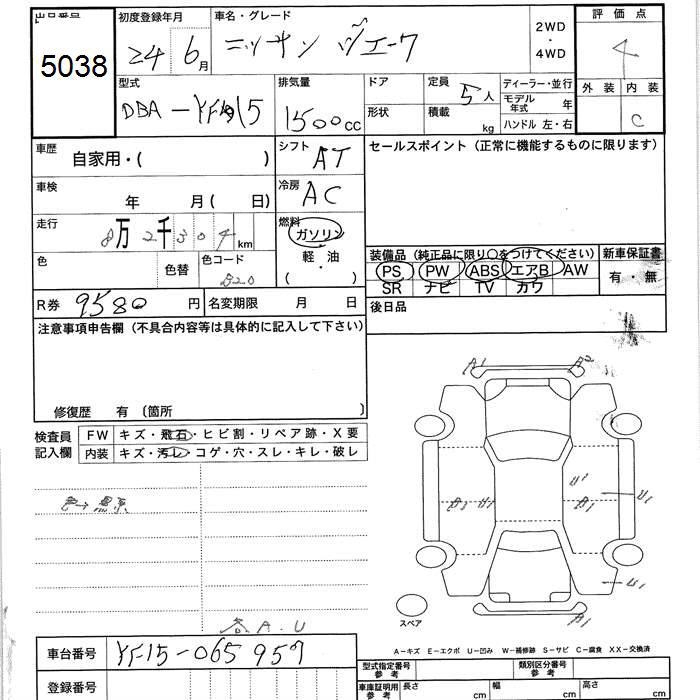 出品番号 初度登録年月 車名・グレード 2WD・4WD 評価点
5038 24 6月 ニッサン ヅューク 4
型式 排気量 ドア 定員 5人 ディーラー・並行 外装 内装
DBA-YF15 1500cc 形状 積載 kg モデル年式 年 C
ハンドル 左・右
車歴 自家用・( ) シフト AT セールスポイント(正常に機能するものに限ります)
車検 年 月( 日) 冷房 AC
走行 8万2千304km 燃料 ガソリン 軽・油 ( )
色 色替 色コード B20
装備品(純正品に限り○をつけてください) 新車保証書
PS PW ABS エアB AW 有・無
SR ナビ TV カワ
R券 9580円 名変期限 月 日 後日品
注意事項申告欄(不具合内容等は具体的に記入して下さい)
修復歴 有(箇所 )
検査員記入欄 FW キズ・飛石・ヒビ割・リペア跡・X要
内装 キズ・汚レ・コゲ・穴・スレ・キレ・破レ
A1 A2
U1
B1 U1 B1 U1
U1
A1
各A.U
スペア
A-キズ E-エクボ U-凹み W-補修跡 S-サビ C-腐食 XX-交換済
車台番号 YF15-065957
登録番号
型式指定番号 参考 類別区分番号 参考
車庫証明用 参考 長さ cm 幅 cm 高さ cm